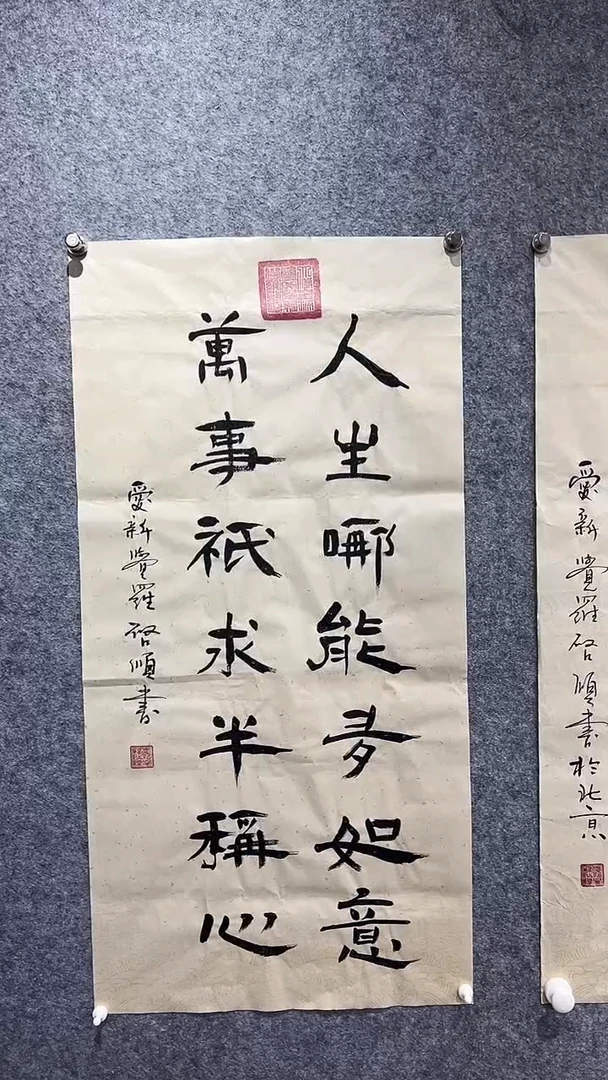 人生哪能多如意
萬事祇求半稱心
愛新覺羅啓順書
愛新覺羅啓順書於北京